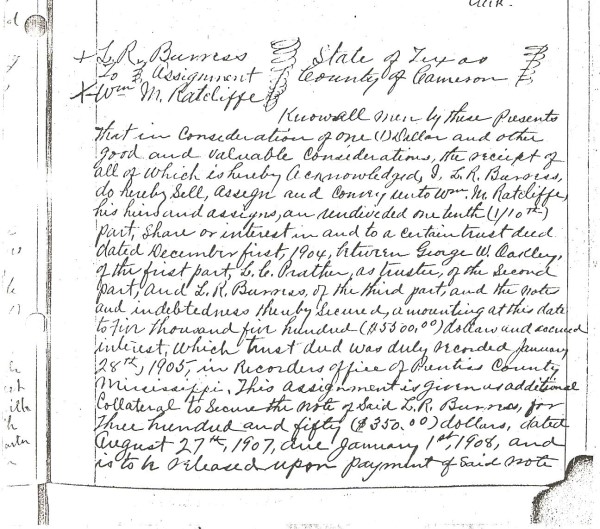 Clk.
L. R. Burress State of Texas
To Assignment County of Cameron
Wm M. Ratcliffe
Know all men by these Presents
That in Consideration of one (1) Dollar and other
good and valuable Considerations, the receipt of
all of which is hereby acknowledged, I, L. R. Burress,
do hereby Sell, Assign and convey unto Wm. M. Ratcliffe,
his heirs and assigns, an undivided one tenth (1/10th)
part, Share or interest in and to a certain trust deed
dated December first, 1904, between George W. Oakley,
of the first part, L. C. Prather, as trustee, of the Second
part, and L. R. Burress, of the third part, and the note
and indebtedness thereby Secured, amounting at this date
to five thousand five hundred ($5500.00) dollars and accrued
interest, which trust deed was duly recorded January
28th, 1905, in Recorders office of Prentiss County
Mississippi. This assignment is given as additional
Collateral to Secure the note of Said L. R. Burress, for
Three hundred and fifty ($350.00) dollars, dated
August 27th, 1907, due January 1st, 1908, and
is to be released upon payment of Said note